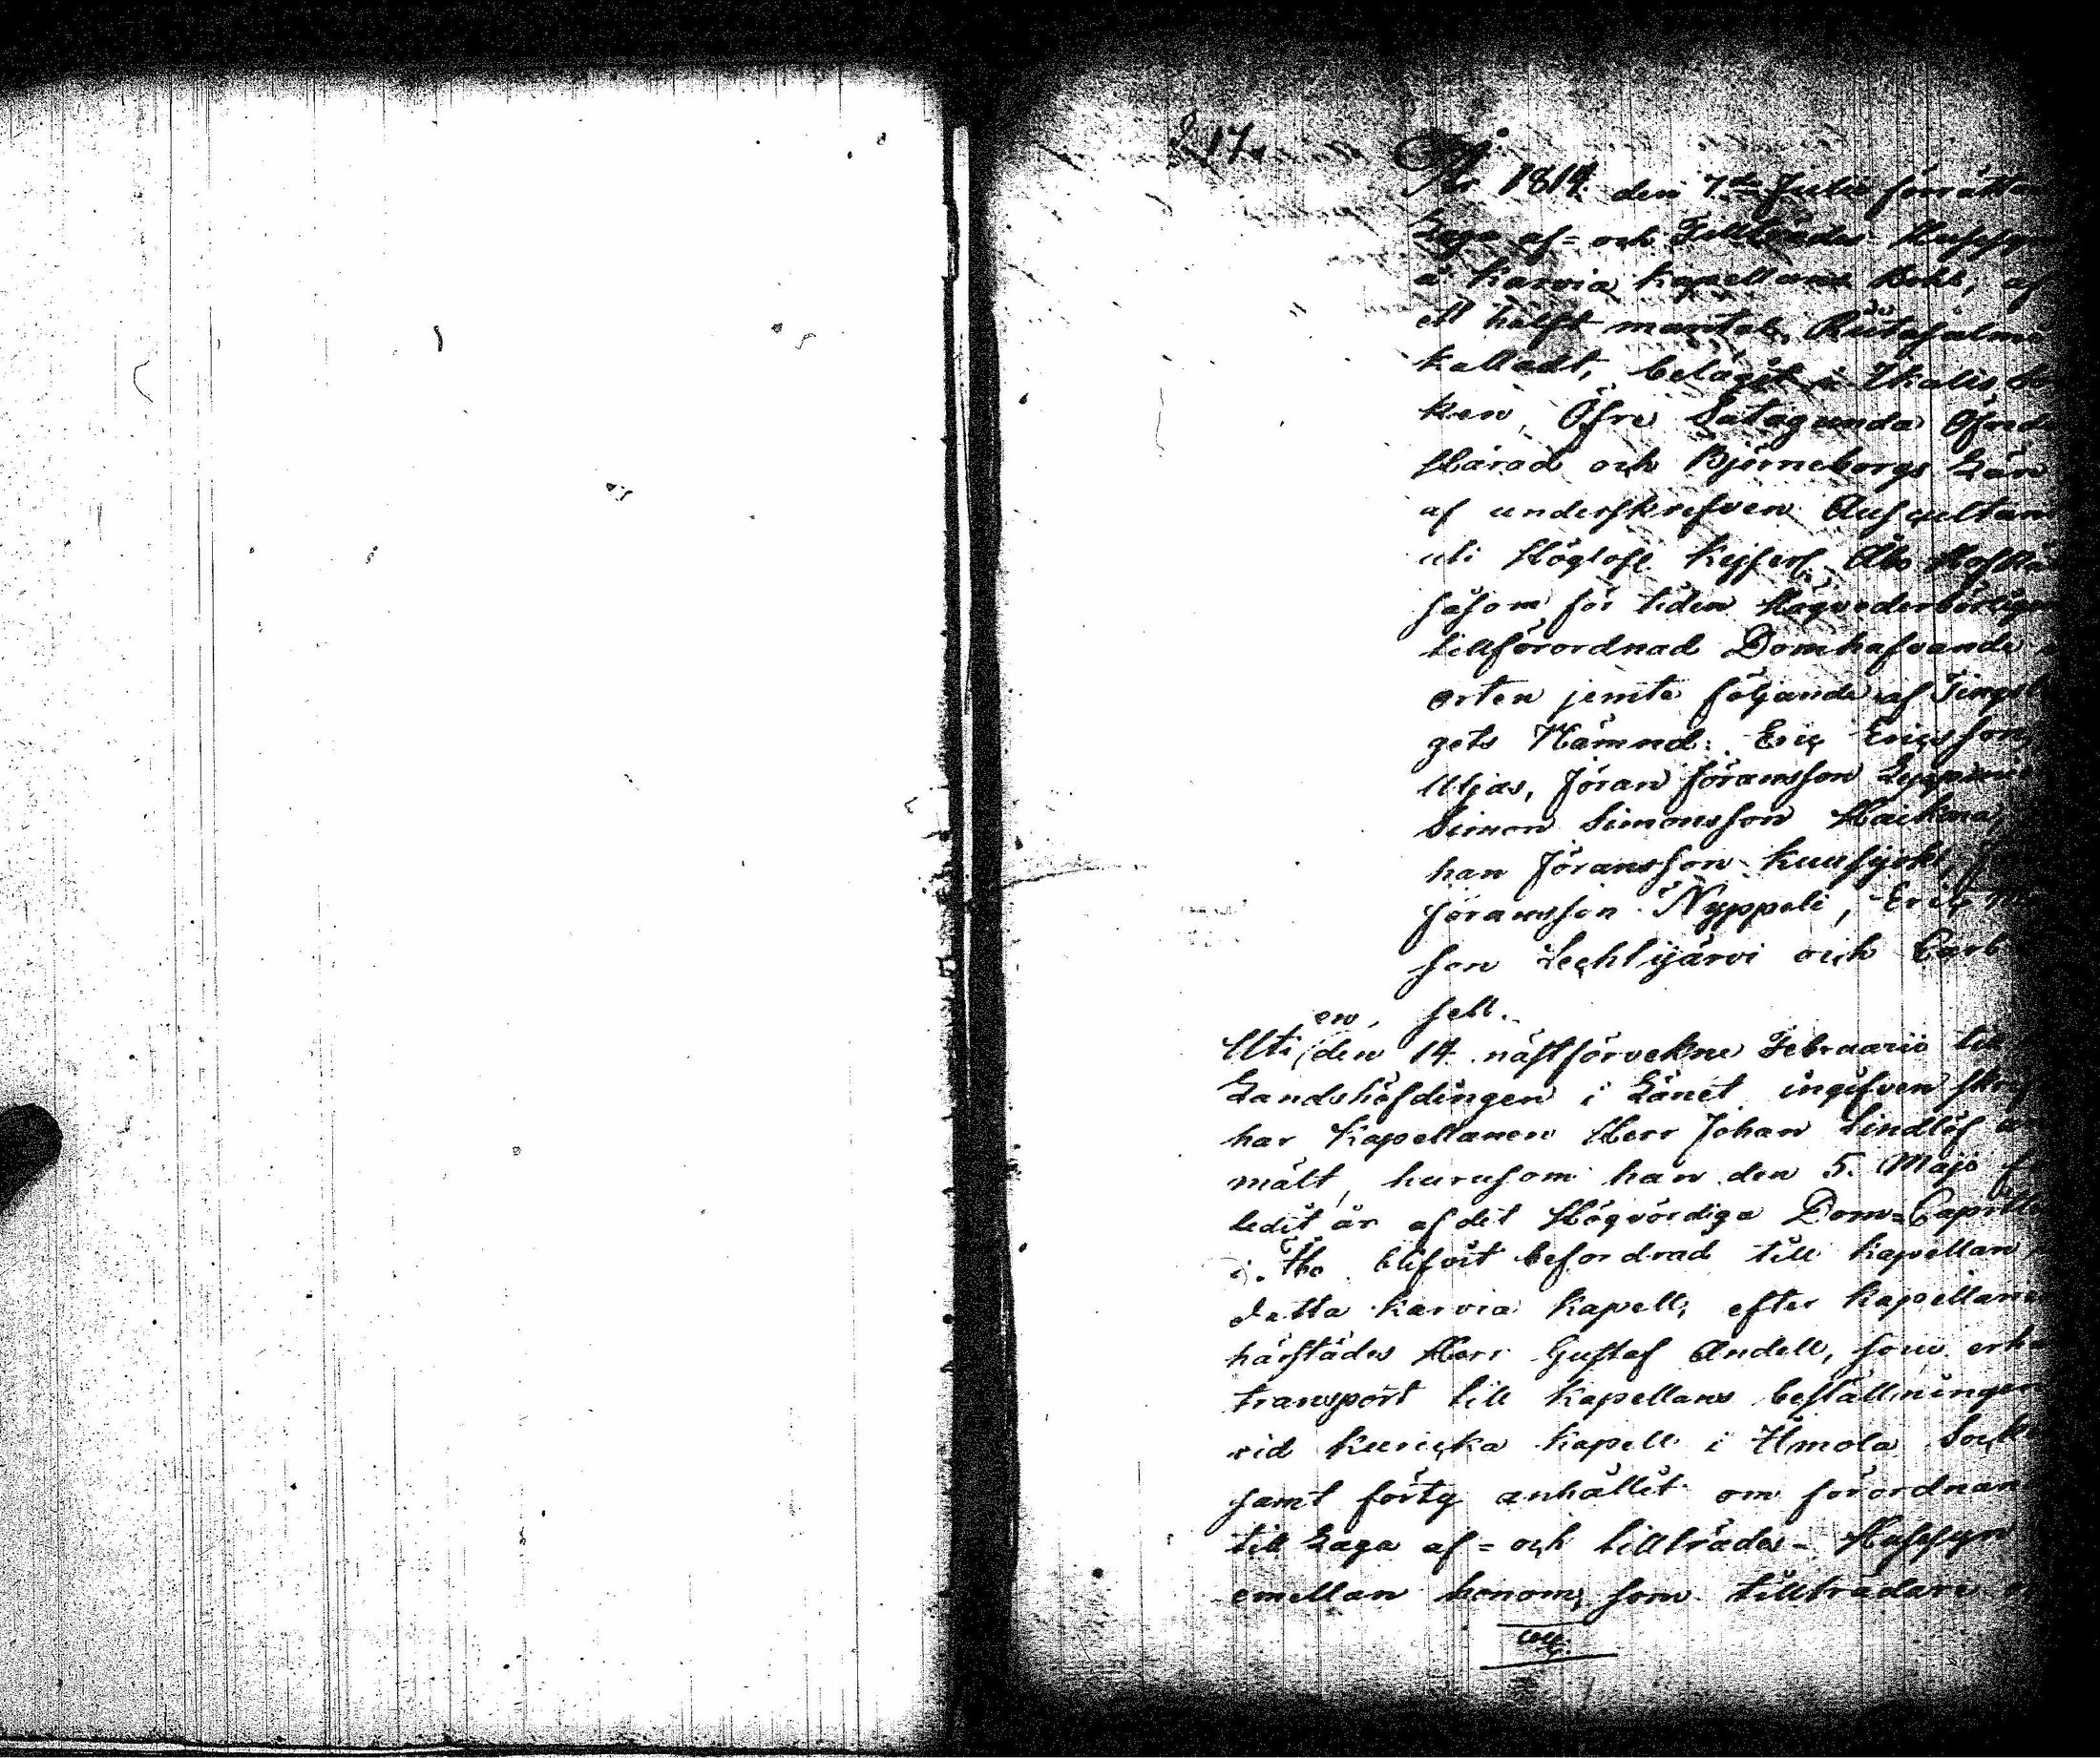 17.
År 1814 den 7de Julii förrättad
Laga af= och Tillträdes- Hussyn
å Karvia Kapellans Bohl, af
ett halft mantal,
kalladt, belägit i Ikalis
ken, Öfre Satagunda Öfredels
Härad och Björneborgs Län
af underskrefven Auscultant
uti Höglofl. Kejserl. Åbo Hofrätt
såsom för tiden Högvederbörligen
tillförordnad Domhafvande
orten jemte följande af Tingsla
gets Nämnd: Eric Ericsson
Uljas, Jöran Jöransson
Simon Simonsson
han Jöransson
Jöransson Nyppeli, Eric
son Lechtijärvi och
en. sell.
Uti den 14 nästförvekne Februarii till
Landshöfdingen i Länet ingifven
har Kapellanen Herr Johan Lindlöf
mält, hurusom han den 5. Maji
ledit år af det Högvördiga Dom=Capitlet
i Åbo blifvit befordrad till Kapellan
detta Karvia Kapell, efter Kapellanen
härstädes Herr Gustaf Andell, som
transport till Kapellans beställningen
vid Kuricka Kapell i Ilmola
samt förtg anhållit om förordnan
till Laga af= och tillträdes- Hussyn
emellan honom, som tillträdare